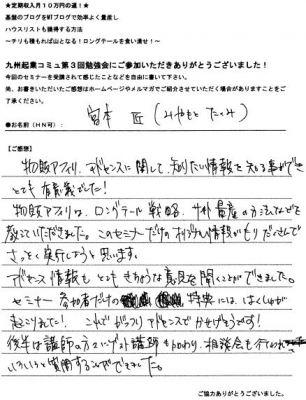 ★定期収入月１０万円の道！★
基盤のブログをMTブログで効率よく量産し
ハウスリストも獲得する方法
～チリも積もれば山となる！ロングテールを食い潰せ！～
九州起業コミュ第３回勉強会にご参加いただきありがとうございました！
今回のセミナーを受講されて感じたことなどを自由に書いて下さい。
尚、お書きいただいたご感想はホームページやメルマガでご紹介させていただく場合がありますことをご了承ください。
●お名前（HN可）： 宮本 匠（みやもと たくみ）
【ご感想】
物販アフィリ、アドセンスに関して、知りたい情報を知る事ができ
とても有意義でした！
物販アフィリは、ロングテール戦略、サイト量産の方法などを
教えていただきました。このセミナーだけのオリジナル情報がもりだくさんで
さっそく実行しようと思います。
アドセンス情報も とても きちょうな意見を聞くことができました。
セミナー参加者だけの 特典には、はくしゅが
起こりました！ これで がっつり アドセンスで かせげそうです！
後半は講師の方々にゲスト講師も加わり、相談会も行なわれ
いろいろと質問することができました。
ご協力ありがとうございました。